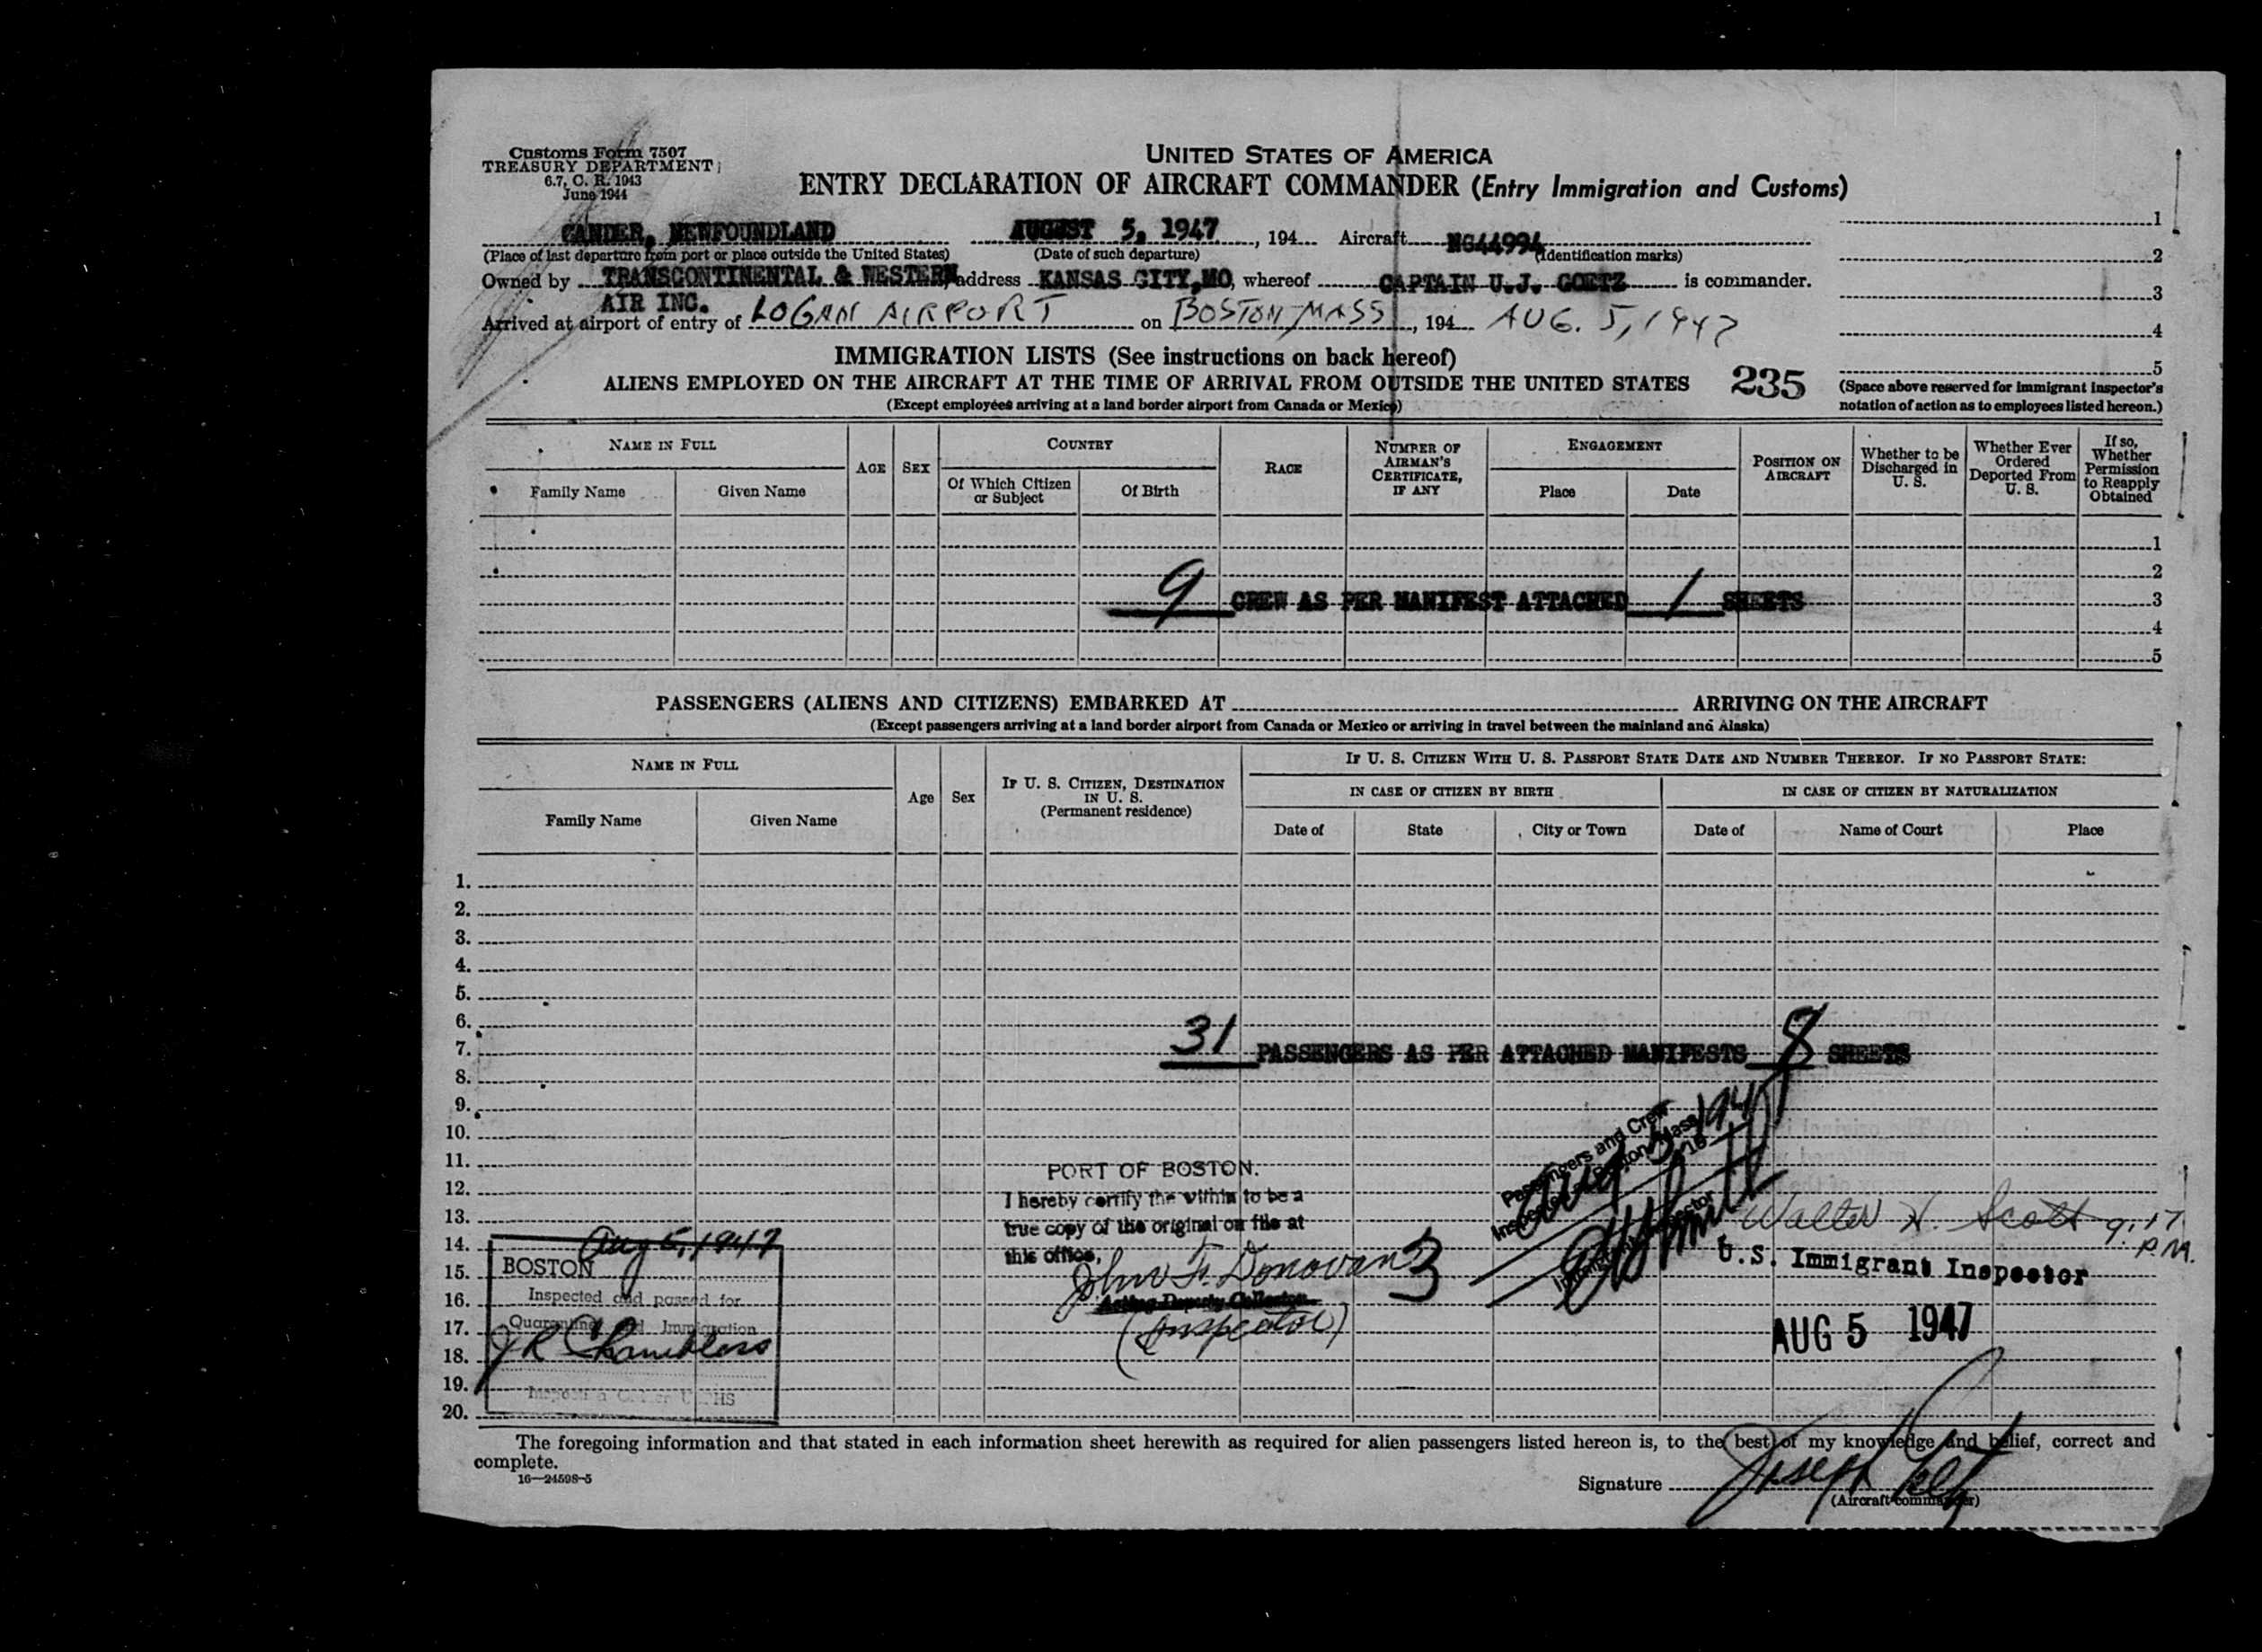 Customs Form 7507
TREASURY DEPARTMENT
6.7, C. R. 1943
June 1944
UNITED STATES OF AMERICA
ENTRY DECLARATION OF AIRCRAFT COMMANDER (Entry Immigration and Customs)
GANDER, NEWFOUNDLAND AUGUST 5, 1947, 194 Aircraft NC44994
(Place of last departure from port or place outside the United States) (Date of such departure) (Identification marks)
Owned by TRANSCONTINENTAL & WESTERN address KANSAS CITY, MO, whereof CAPTAIN U.J. GOETZ is commander.
AIR INC.
Arrived at airport of entry of LOGAN AIRPORT on BOSTON, MASS, 194 AUG. 5, 1947
1
2
3
4
5
(Space above reserved for immigrant inspector's notation of action as to employees listed hereon.)
IMMIGRATION LISTS (See instructions on back hereof)
ALIENS EMPLOYED ON THE AIRCRAFT AT THE TIME OF ARRIVAL FROM OUTSIDE THE UNITED STATES 235
(Except employees arriving at a land border airport from Canada or Mexico)
NAME IN FULL
Family Name
Given Name
AGE
SEX
COUNTRY
Of Which Citizen or Subject
Of Birth
RACE
NUMBER OF AIRMAN'S CERTIFICATE, IF ANY
ENGAGEMENT
Place
Date
POSITION ON AIRCRAFT
Whether to be Discharged in U. S.
Whether Ever Ordered Deported From U. S.
If so, Whether Permission to Reapply Obtained
1
2
9 CREW AS PER MANIFEST ATTACHED 1 SHEETS 3
4
5
PASSENGERS (ALIENS AND CITIZENS) EMBARKED AT ARRIVING ON THE AIRCRAFT
(Except passengers arriving at a land border airport from Canada or Mexico or arriving in travel between the mainland and Alaska)
NAME IN FULL
Family Name
Given Name
Age
Sex
IF U. S. CITIZEN, DESTINATION IN U. S.
(Permanent residence)
IF U. S. CITIZEN WITH U. S. PASSPORT STATE DATE AND NUMBER THEREOF. IF NO PASSPORT STATE:
IN CASE OF CITIZEN BY BIRTH
IN CASE OF CITIZEN BY NATURALIZATION
Date of
State
City or Town
Date of
Name of Court
Place
1.
2.
3.
4.
5.
6.
7. 31 PASSENGERS AS PER ATTACHED MANIFESTS 8 SHEETS
8.
9.
10.
11.
12.
13.
14.
15.
16.
17.
18.
19.
20.
Passengers and Crew
Aug 5, 1947
PORT OF BOSTON.
I hereby certify the within to be a
true copy of the original on file at
this office,
John F. Donovan 3
Acting Deputy Collector
(Inspector)
Walter H. Scott 9:17 P.M.
U.S. Immigrant Inspector
AUG 5 1947
Aug 5, 1947
BOSTON
Inspected and passed for
Quarantine and Immigration
J R Chambless
The foregoing information and that stated in each information sheet herewith as required for alien passengers listed hereon is, to the best of my knowledge and belief, correct and
complete.
16—24598-5
Signature Joseph
(Aircraft commander)